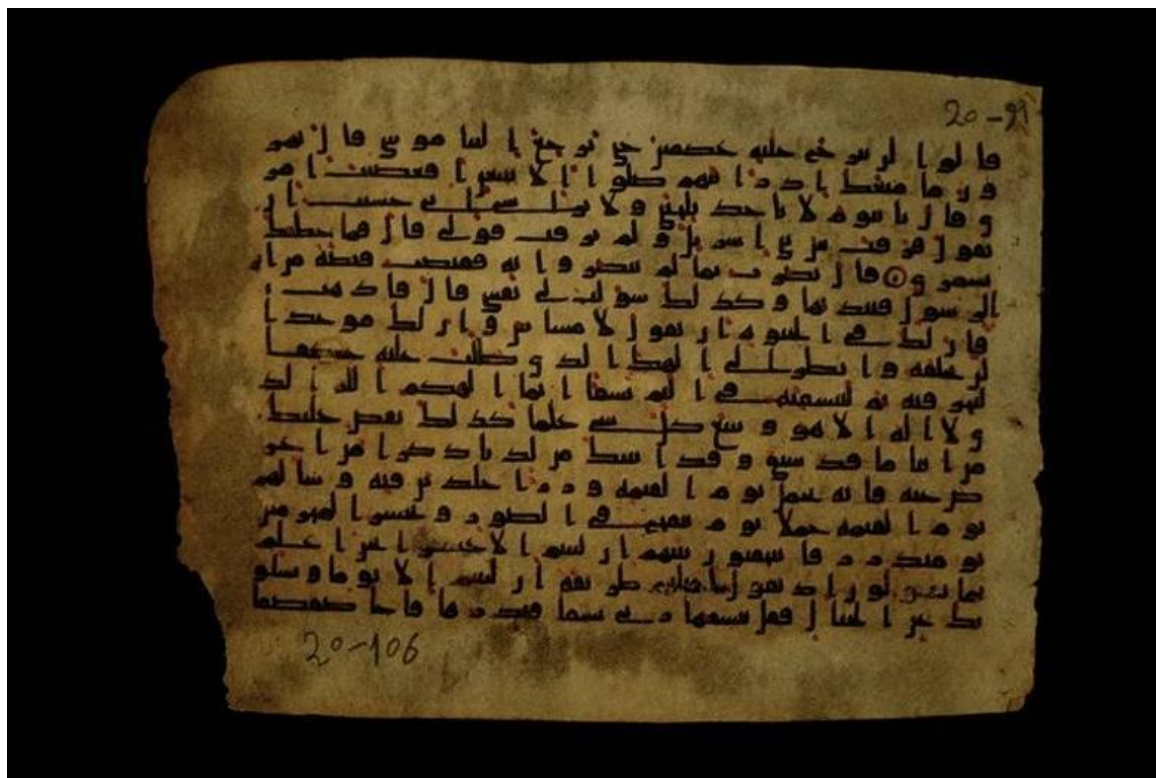 20-91
قالوا لن نبرح عليه عكفين حتى يرجع الينا موسى قال يهر
ون ما منعك اذ رايتهم ضلوا الا تتبعن افعصيت امر
ي قال يابنوم لا تاخذ بلحيتي ولا براسي اني خشيت ان
تقول فرقت بين بني اسريل ولم ترقب قولي قال فما خطبك
يسمري قال بصرت بما لم يبصروا به فقبضت قبضة من اثر
الرسول فنبذتها وكذلك سولت لي نفسي قال فاذهب
فان لك في الحيوة ان تقول لا مساس وان لك موعدا
لن تخلفه وانظر الى الهك الذي ظلت عليه عكفا
لنحرقنه ثم لننسفنه في اليم نسفا انما الهكم الله الذ
ي لا اله الا هو وسع كل شي علما كذلك نقص عليك
من انبا ما قد سبق وقد اتينك من لدنا ذكرا من اعر
ض عنه فانه يحمل يوم القيمه وزرا خلدين فيه وسا لهم
يوم القيمه حملا يوم ينفخ في الصور ونحشر المجرمين
يومئذ زرقا يتخفتون بينهم ان لبثتم الا عشرا نحن اعلم
بما يقولون اذ يقول امثلهم طريقه ان لبثتم الا يوما ويسلو
نك عن الجبال فقل ينسفها ربي نسفا فيذرها قاعا صفصفا
20-106